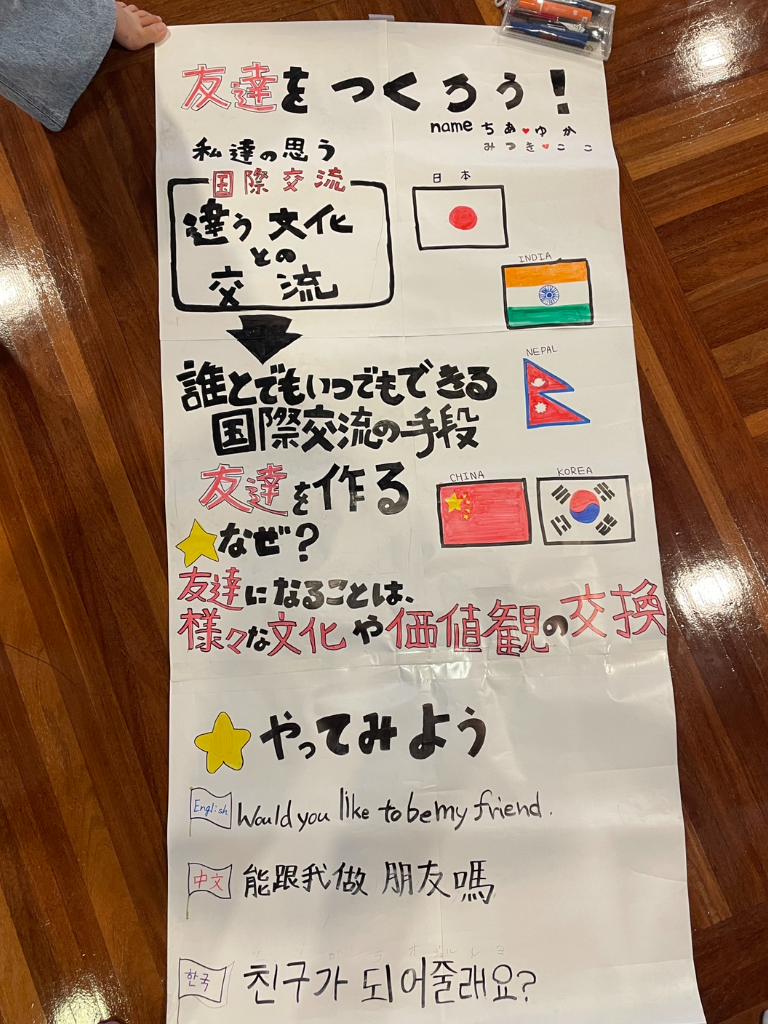 友達をつくろう!
name ちあ♥ゆか
みつき♥ここ
私達の思う
国際交流
違う文化
との
交流
日本
INDIA
誰とでもいつでもできる
国際交流の手段
NEPAL
友達を作る
CHINA
KOREA
なぜ?
友達になることは、
様々な文化や価値観の交換
やってみよう
English Would you like to be my friend.
中文 能跟我做 朋友嗎
한국 친구가 되어줄래요?